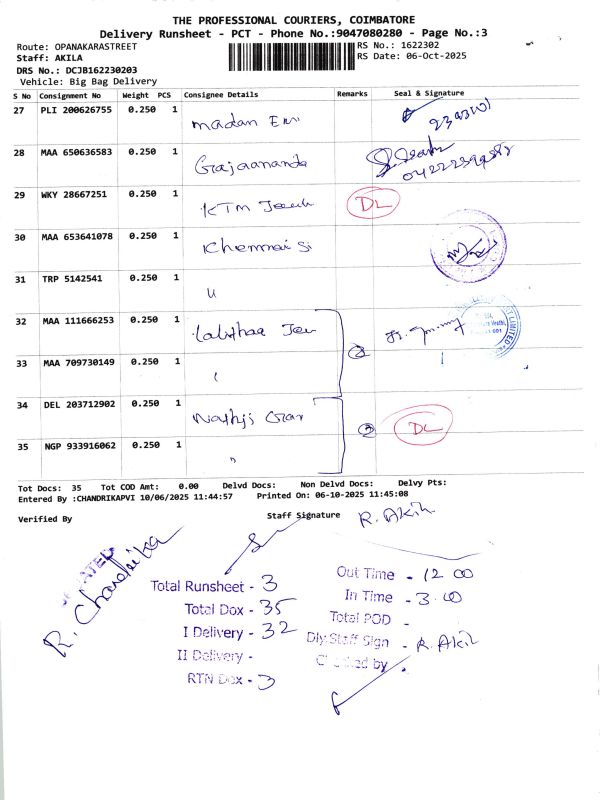 THE PROFESSIONAL COURIERS, COIMBATORE
Delivery Runsheet - PCT - Phone No.:9047080280 - Page No.:3
Route: OPANAKARASTREET
RS No.: 1622302
Staff: AKILA
RS Date: 06-Oct-2025
DRS No.: DCJB162230203
Vehicle: Big Bag Delivery
S No Consignment No Weight PCS Consignee Details Remarks Seal & Signature
27 PLI 200626755 0.250 1 madan
28 MAA 650636583 0.250 1 Gajaananda
29 WKY 28667251 0.250 1 KTM DL
30 MAA 653641078 0.250 1 Chennai Si
31 TRP 5142541 0.250 1 "
32 MAA 111666253 0.250 1 Lalithaa 2
33 MAA 709730149 0.250 1
34 DEL 203712902 0.250 1 2 DL
35 NGP 933916062 0.250 1 "
Tot Docs: 35 Tot COD Amt: 0.00 Delvd Docs: Non Delvd Docs: Delvy Pts:
Entered By :CHANDRIKAPVI 10/06/2025 11:44:57 Printed On: 06-10-2025 11:45:08
Verified By
Staff Signature R. Akila
R. Chandrika
Total Runsheet - 3
Total Dox - 35
I Delivery - 32
II Delivery -
RTN Dox - 3
Out Time - 12 00
In Time - 3.00
Total POD -
Dly.Staff Sign - R. Akil
Checked by